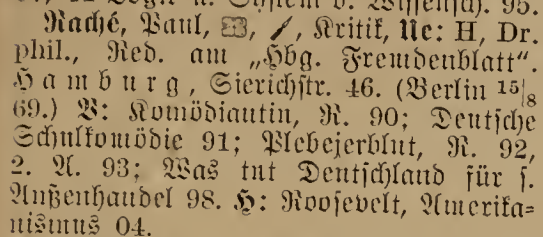 u. System d. Wissensch. 95.
Raché, Paul, Kritik, Ue: H, Dr.
phil., Red. am „Hbg. Fremdenblatt“.
Hamburg, Sierichstr. 46. (Berlin 15/8
69.) V: Komödiantin, R. 90; Deutsche
Schulkomödie 91; Plebejerblut, R. 92,
2. A. 93; Was tut Deutschland für s.
Außenhandel 98. H: Roosevelt, Amerika=
nismus 04.